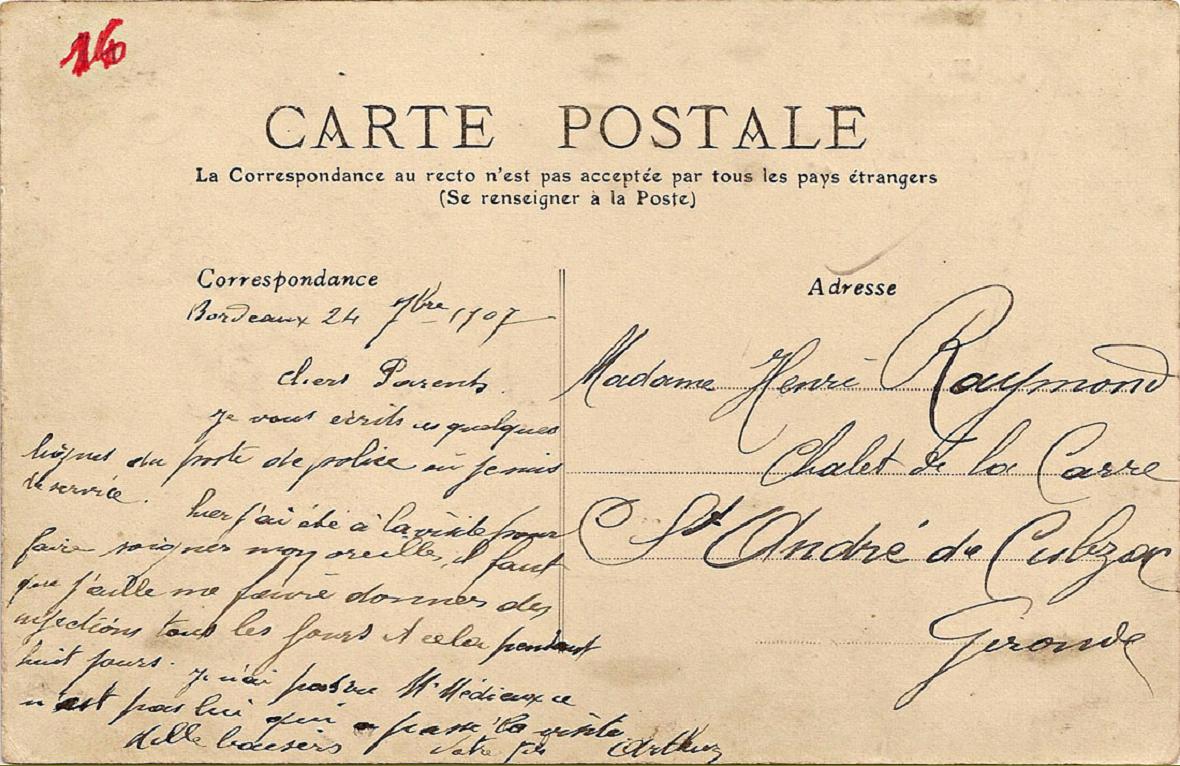 16
CARTE POSTALE
La Correspondance au recto n'est pas acceptée par tous les pays étrangers
(Se renseigner à la Poste)
Correspondance
Bordeaux 24 7bre 1907
chers Parents.
je vous écrits ces quelques
lignes du poste de police où je suis
de service.
hier j'ai été à la visite pour
faire soigner mon oreille, il faut
que j'aille me faire donner des
injections tous les jours et cela pendant
huit jours.
je n'ai pas vu Mr ce
n'est pas lui qui a passé la visite
Mille baisers
Votre fils
Arthur
Adresse
Madame Henri Raymond
Chalet de la Carre
St André de Cubzac
Gironde